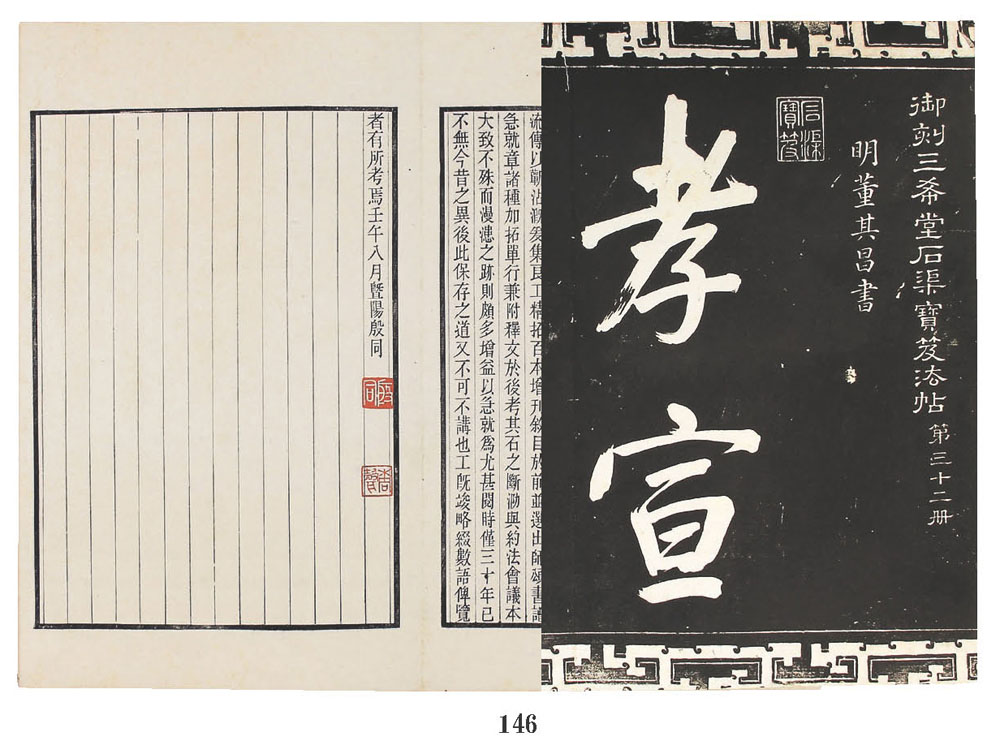 御刻三希堂石渠寶笈法帖 第三十二册
明董其昌書
石渠寶笈
孝宣
爰集良工精拓百本增刊敘目於前並選出師頌書譜
急就章諸種加拓單行兼附釋文於後考其石之斷泐與約法會議本
大致不殊而漫漶之跡則頗多增益以急就爲尤甚閱時僅三十年已
不無今昔之異後此保存之道又不可不講也工既竣略綴數語俾覽
者有所考焉壬午八月暨陽殷同
殷同
146